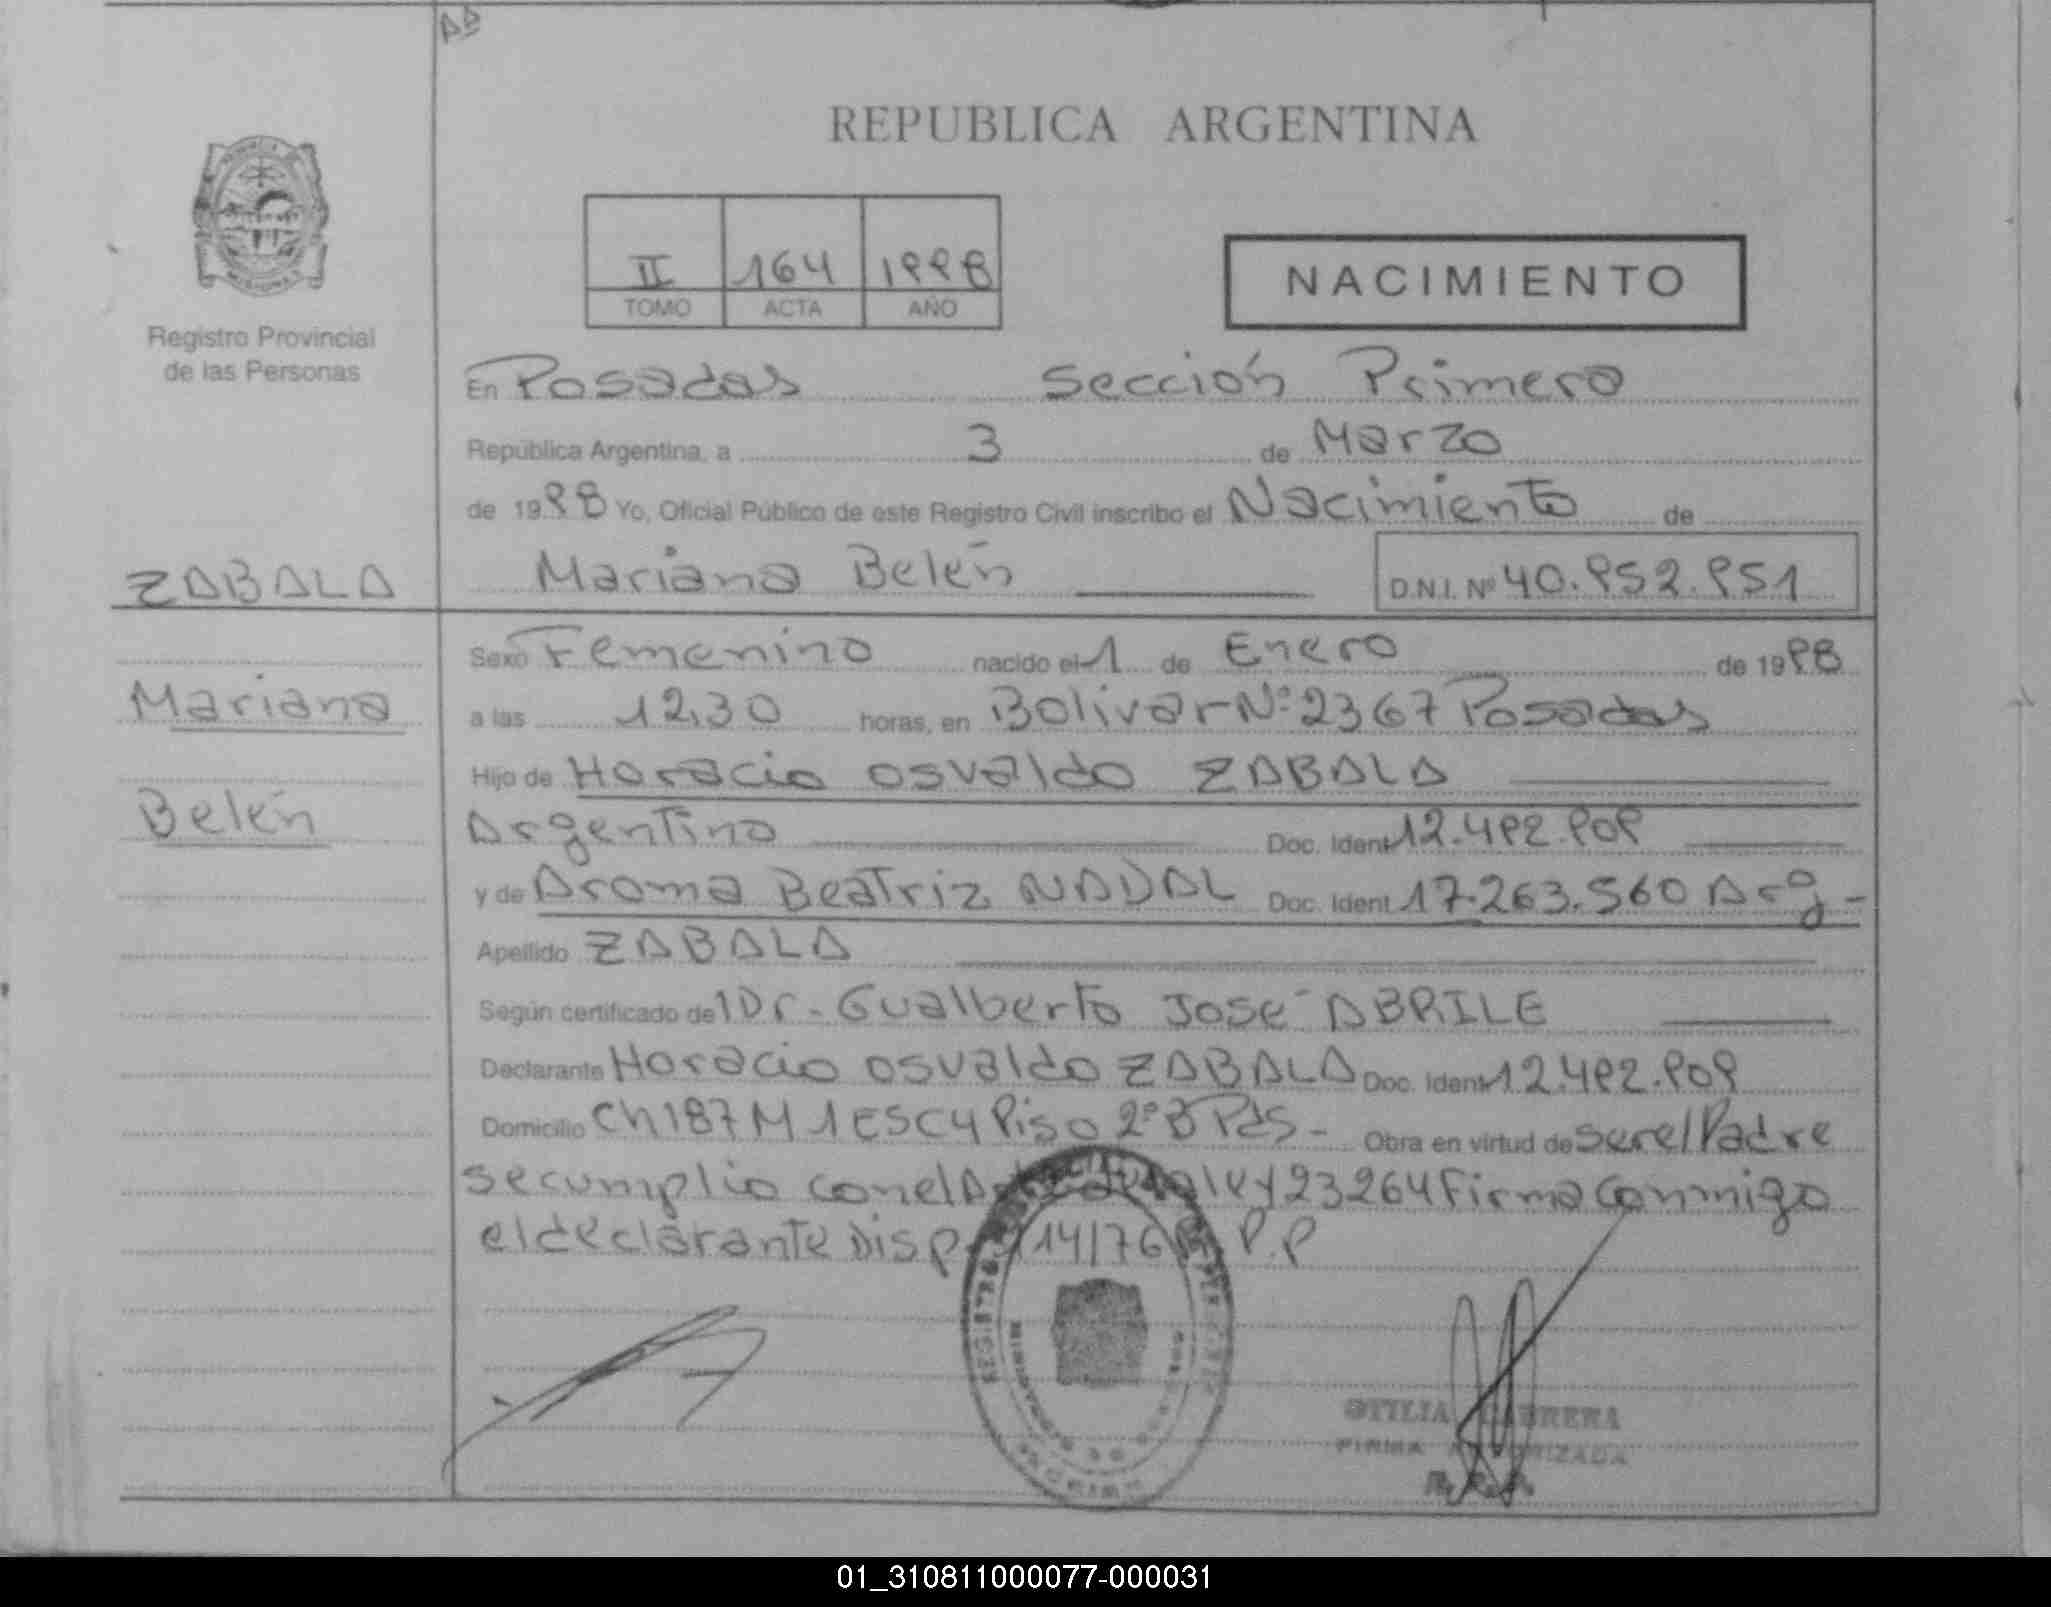 REPUBLICA ARGENTINA
II 164 1998
TOMO ACTA AÑO
NACIMIENTO
Registro Provincial
de las Personas
En Posadas Sección Primera
República Argentina, a 3 de Marzo
de 1998 Yo, Oficial Público de este Registro Civil inscribo el Nacimiento de
ZABALA
Mariana Belén D.N.I. Nº 40.952.951
Sexo Femenino nacido el 1 de Enero de 1998
Mariana
a las 12,30 horas, en Bolivar Nº 2367 Posadas
Hijo de Horacio Osvaldo ZABALA
Belén
Argentino Doc. Ident 12.492.909
y de Aroma Beatriz NADAL Doc. Ident 17.263.560 Arg-
Apellido ZABALA
Según certificado del Dr. Gualberto José ABRILE
Declarante Horacio Osvaldo ZABALA Doc. Ident 12.492.909
Domicilio Ch 187 M 1 ESC 4 Piso 2º B Pds- Obra en virtud de ser el Padre
se cumplio con el ley 23264 Firma Conmigo
el declarante Disp 14/76 P.P
OTILIA CABRERA
FIRMA AUTORIZADA
01_310811000077-000031